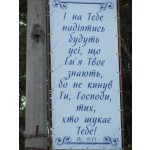 І на Тебе
надіятись
будуть
усі, що
Ім'я Твоє
знають,
бо не кинув
Ти, Господи,
тих,
хто шукає
Тебе!
Пс. 9:11